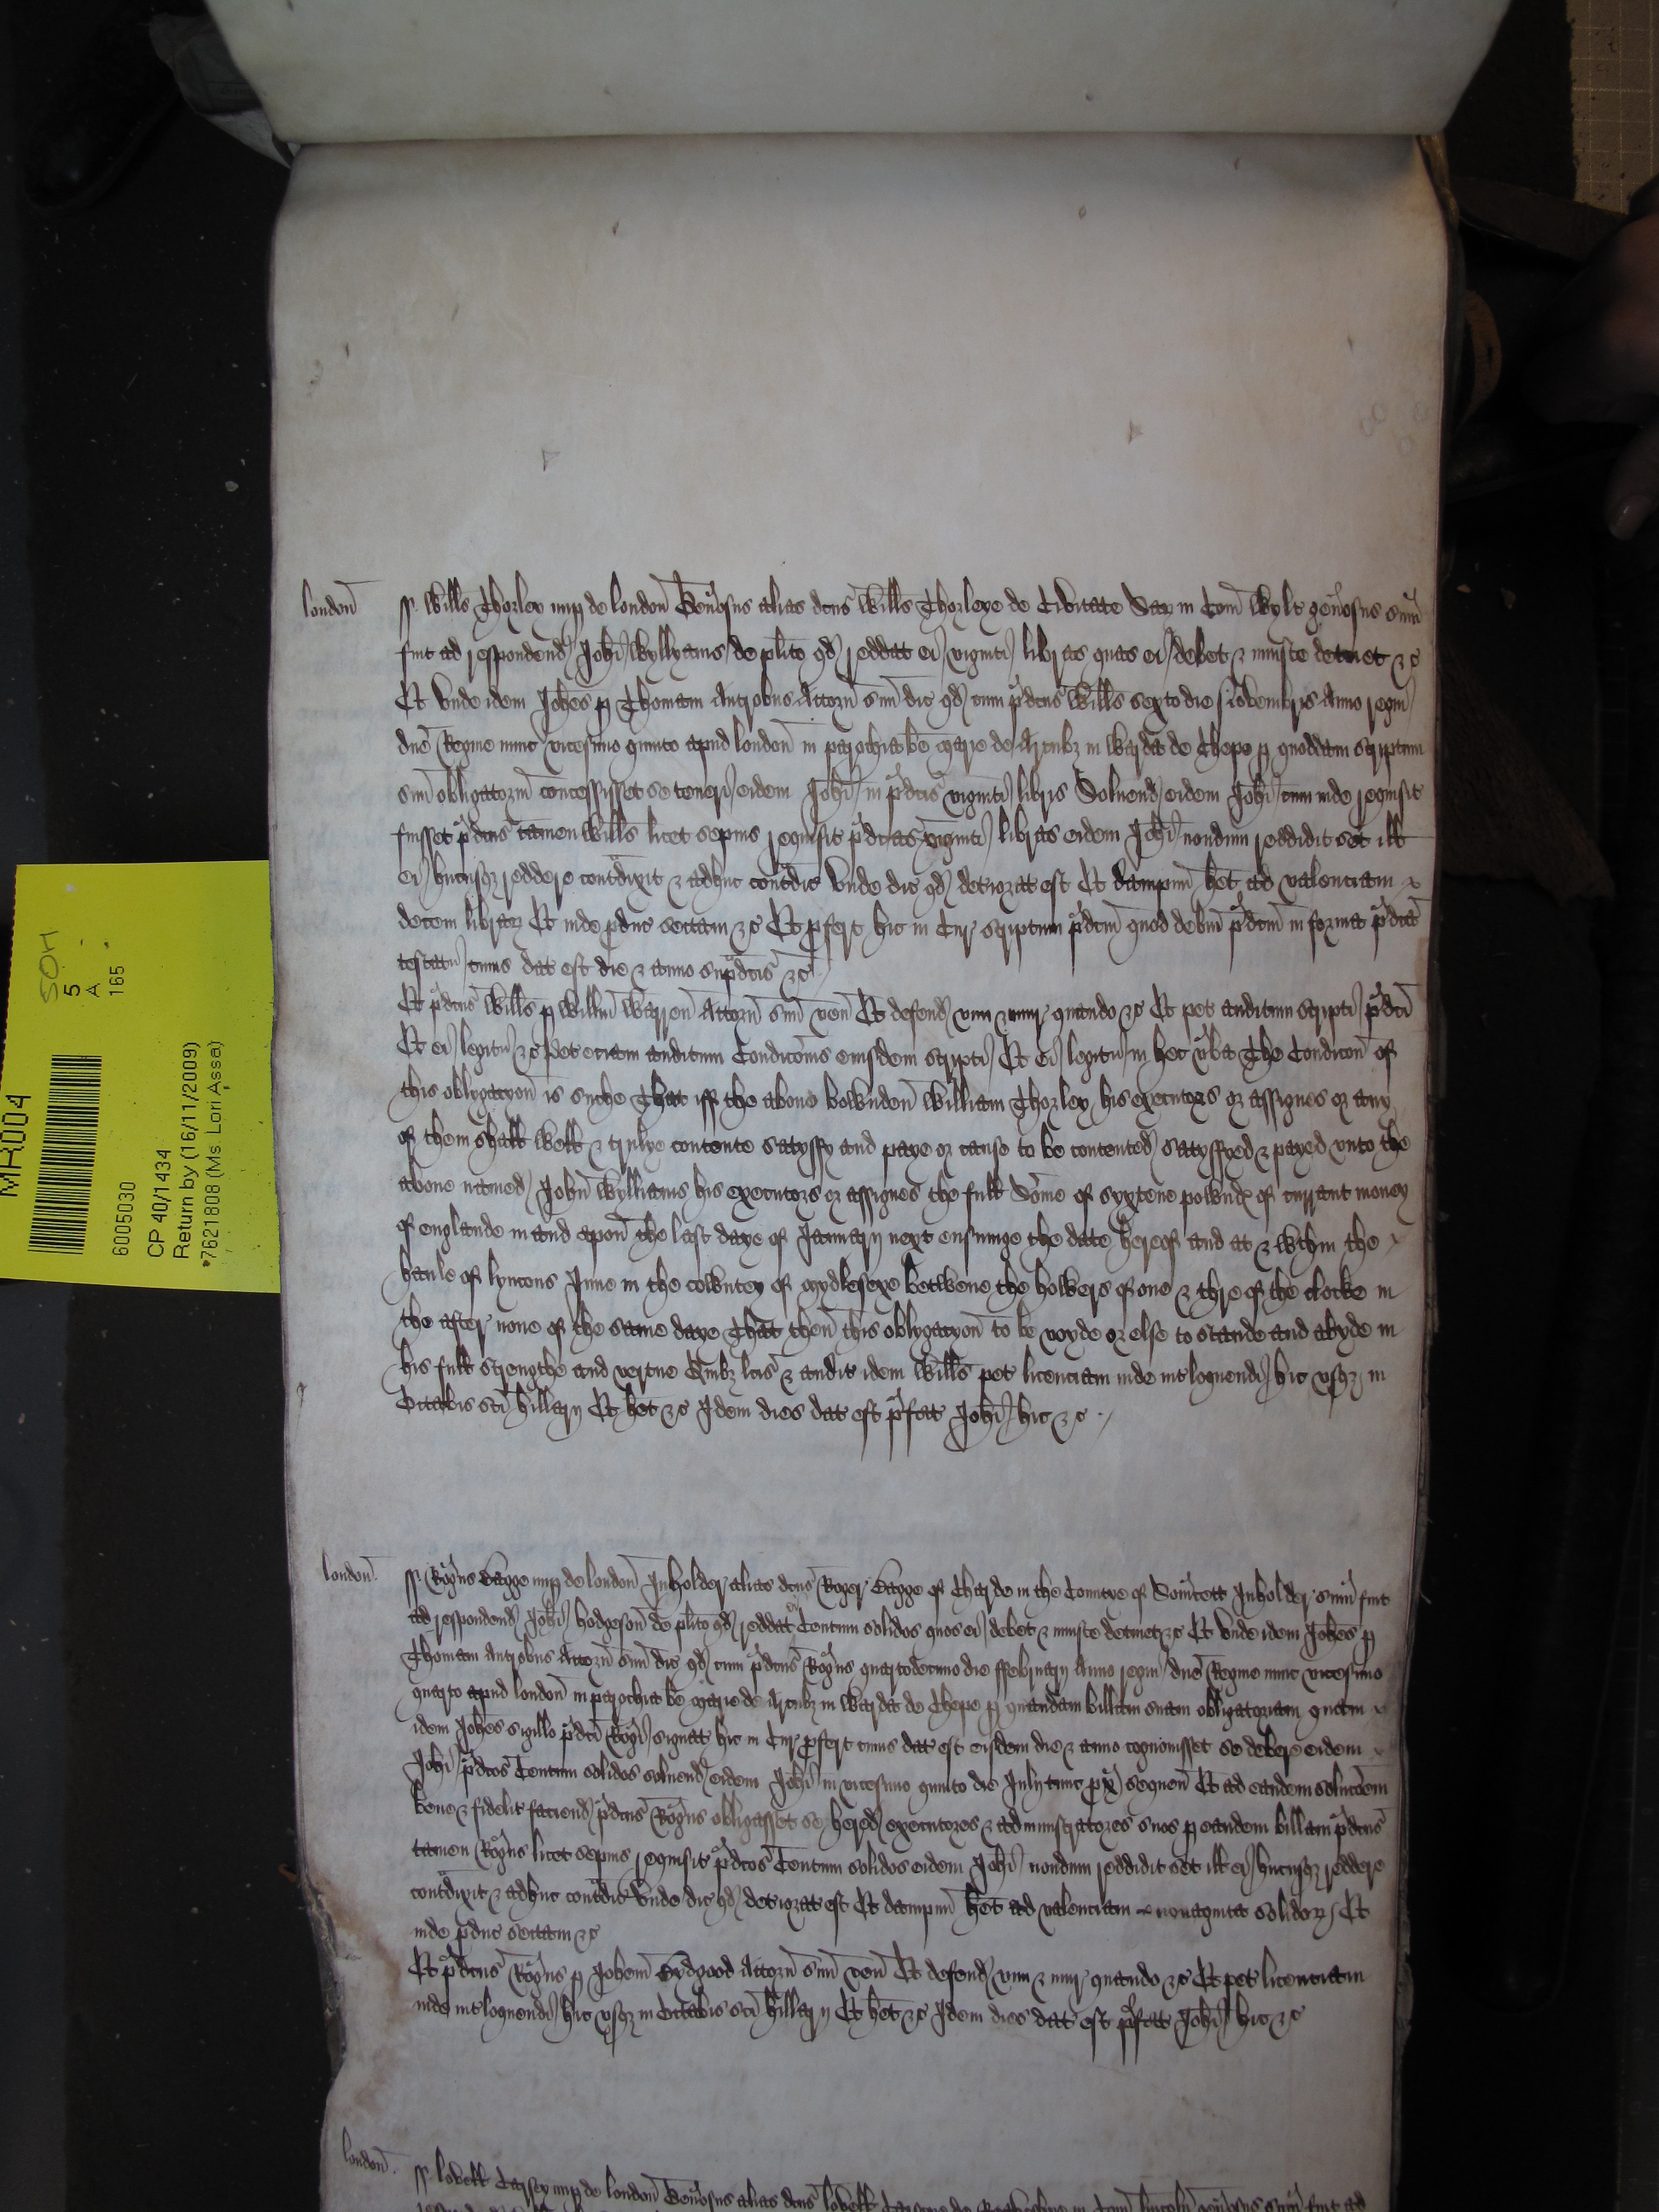 SOH
5
A
165
MR004
6005030
CP 40/1434
Return by (16/11/2009)
*7621808 (Ms. Lori Assa)
london
ss Wills Thorley nup de london Genosus alias dcus Wills Thorleye de Civitate Sar in Com Wylt genosus sum
fuit ad respondend Johi Wyllyams de plito qd reddat ei viginti libras quas ei debet & iniuste detinet &c
Et unde idem Johes p Thomam Antrobus Attorn suu dic qd cum pdcus Wills sexto die Novembris Anno regni
dne Regine nunc vicesimo quinto apud london in parochia be Marie de Arcubz in Warda de Chepe p quoddam scriptum
suu obligatoriu concessisset se teneri eidem Johi in pdcis viginti libris Solvend eidem Johi cum inde requisit
fuisset pdcus tamen Wills licet sepius requisit pdcas viginti libras eidem Johi nondum reddidit set ill
ei hucusqz reddere contdixit & adhuc contdic Unde dic qd deteriorat est Et dampnu het ad valenciam
decem librarz Et inde pduc sectam &c Et pfert hic in Cur scriptum pdcm quod debitu pdcm in forma pdca
testatur cuius dat est die & anno supdcis &c
Et pdcus Wills p Willm Warren Attorn suu ven Et defend vim & iniur quando &c Et pet auditum scripti pdci
Et ei legitur &c Pet eciam auditum Condicois eiusdem scripti Et ei legitur in hec vba The Condicon of
this oblygacyon is suche That iff the above bowunden William Thorley his executors or assignes or any
of them shall well & trulye contente satysfy and paye or cause to be contented satysfyed & payed unto the
above named John Wylliams his executors or assignes the full Some of syxtene pownds of currant money
of englande in and apon the last daye of January next ensuinge the date hereof and at & wthin the
haule of lyncons Inne in the cowntey of mydlesexe betwene the howers of one & thre of the clocke in
the after none of the same daye That then this oblygacyon to be voyde or else to stande and abyde in
his full strengthe and vertue Quibz lcis & audit idem Wills pet licenciam inde intloquendi hic usqz in
Octabis sci hillarij Et het &c Idem dies dat est pfat Johi hic &c
london
ss Rogus Bagge nup de london Inholder alias dcus Roger Bagge of Charde in the Countye of Somcett Inholder sum fuit
ad respondend Johi hodgeson de plito qd reddat ei Centum solidos quos ei debet & iniuste detinet &c Et unde idem Johes p
Thomam Antrobus Attorn suu dic qd cum pdcus Rogus quartodecimo die ffebruarij Anno regni dne Regine nunc vicesimo
quarto apud london in parochia be Marie de Arcubz in Warda de Chepe p quandam billam suam obligatoriam quam
idem Johes sigillo pdci Rogi signat hic in Cur pfert cuius dat est eisdem die & anno cognovisset se debere eidem
Johi pdcos Centum solidos solvend eidem Johi in vicesimo quinto die Julij tunc px sequen Et ad eandem solucoem
bene & fidelit faciend pdcus Rogus obligasset se hered executores & administratores suos p eandem billam pdcus
tamen Rogus licet sepius requisit pdcos Centum solidos eidem Johi nondum reddidit set ill ei hucusqz reddere
contdixit & adhuc contdic Unde dic qd deteriorat est Et dampnu het ad valenciam nonaginta solidorz Et
inde pduc sectam &c
Et pdcus Rogus p Johem Attorn suu ven Et defend vim & iniur quando &c Et pet licenciam
inde intloquendi hic usqz in Octabis sci hillarij Et het &c Idem dies dat est pfat Johi hic &c
london
ss lovell nup de london Genosus alias dcus lovell